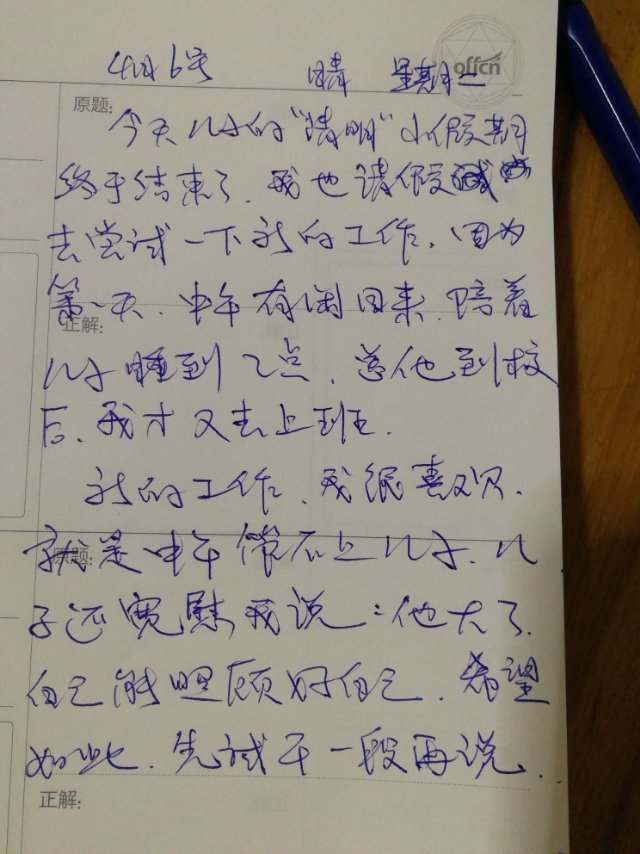 offcn
4月6号 晴 星期二
原题:
今天儿子的“清明”小假期
终于结束了，我也请假
去尝试一下新的工作，因为
第一天，中午有闲回来，陪着
正解:
儿子睡到2点，送他到校
后，我才又去上班。
新的工作，我很喜欢，
原题:
就是中午管不上儿子，儿
子还宽慰我说：他大了，
自己能照顾好自己，希望
如此，先试干一段再说。
正解: